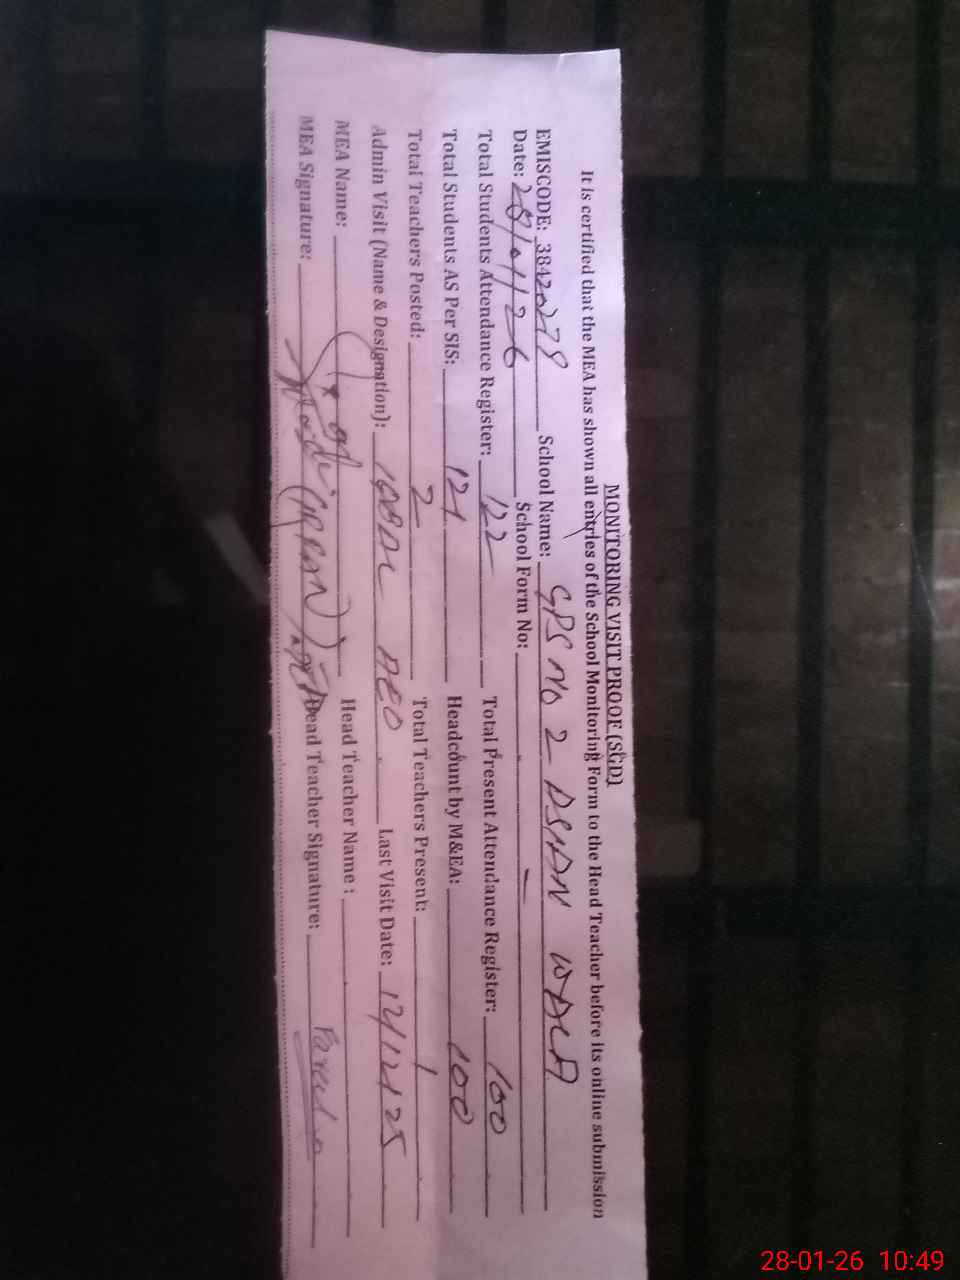 MONITORING VISIT PROOF (SGD)
It is certified that the MEA has shown all entries of the School Monitoring Form to the Head Teacher before its online submission
EMISCODE: 38420279 School Name: GPS No 2 DSHAN WALA
Date: 28/01/26 School Form No: -
Total Students Attendance Register: 122 Total Present Attendance Register: 100
Total Students AS Per SIS: 121 Headcount by M&EA: 100
Total Teachers Posted: 2 Total Teachers Present: 1
Admin Visit (Name & Designation): IQBAL AEO Last Visit Date: 12/12/25
MEA Name: Head Teacher Name :
MEA Signature: Head Teacher Signature:
28-01-26 10:49